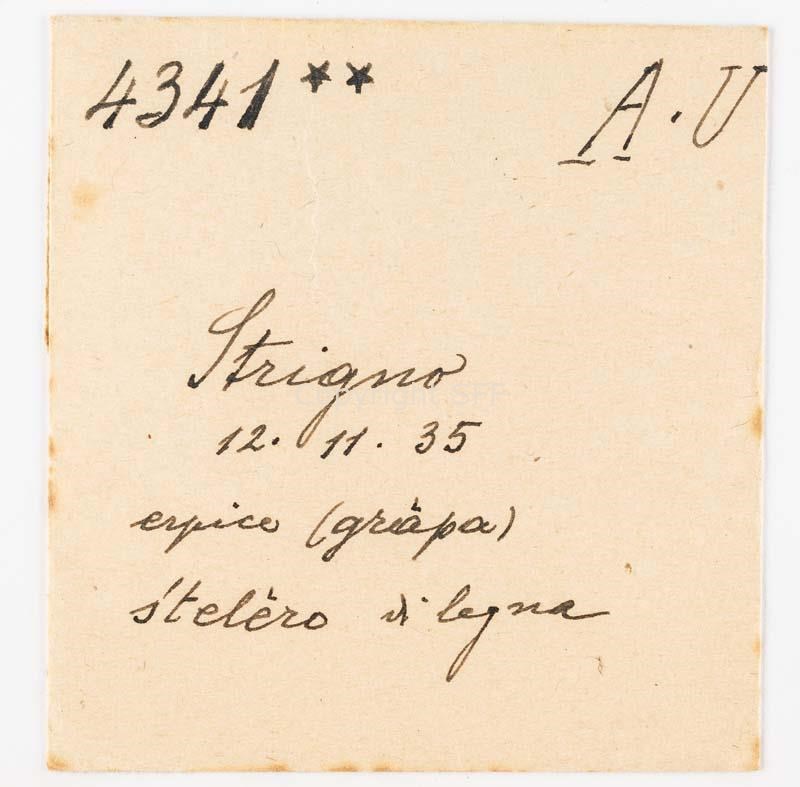 4341** A. U
Strigno
12. 11. 35
erpice (gràpa)
s'telèro di legna
Copyright SFF